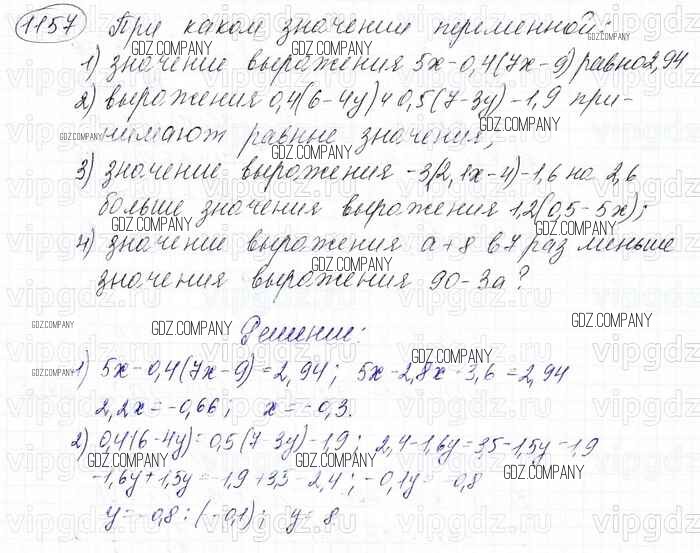 1157 При каком значении переменной:
1) значение выражения 5x-0,4(7x-9) равно 2,94
2) выражения 0,4(6-4y) и 0,5(7-3y)-1,9 при-
нимают равные значения;
3) значение выражения -3(2,1x-4)-1,6 на 2,6
больше значения выражения 1,2(0,5-5x);
4) значение выражения a+8 в 7 раз меньше
значения выражения 90-3a?
Решение:
1) 5x-0,4(7x-9)=2,94; 5x-2,8x-3,6=2,94
2,2x=-0,66; x=-0,3.
2) 0,4(6-4y)=0,5(7-3y)-1,9; 2,4-1,6y=3,5-1,5y-1,9
-1,6y+1,5y=-1,9+3,5-2,4; -0,1y=-0,8
y=-0,8:(-0,1); y=8
GDZ.COMPANY
vipgdz.ru